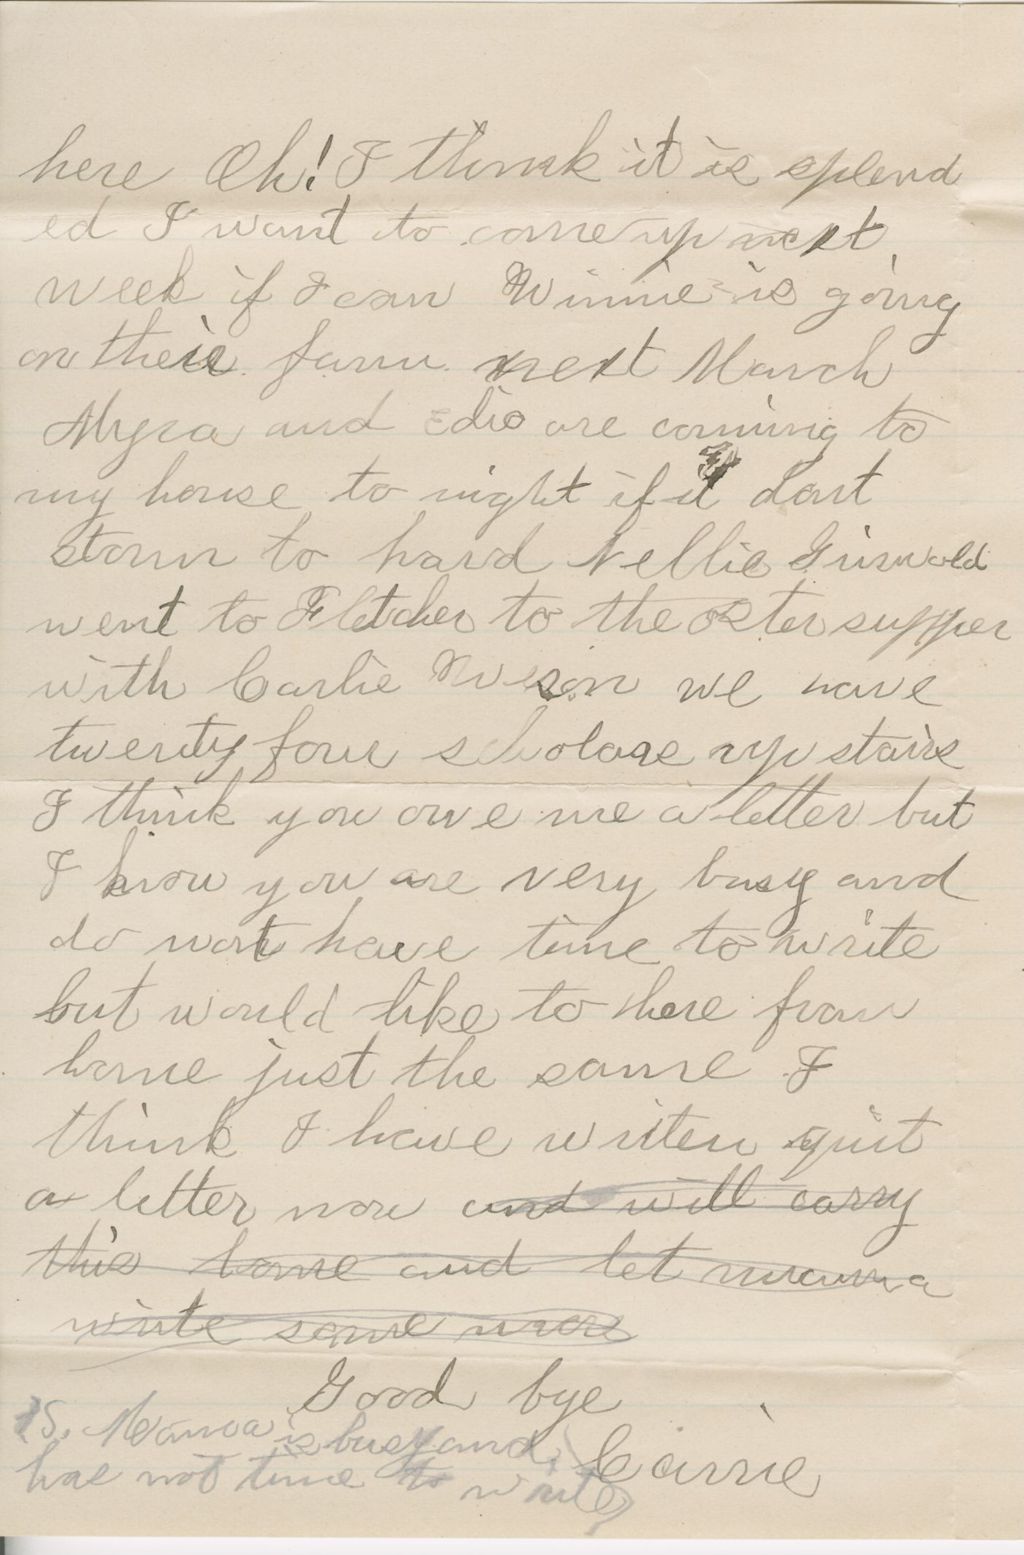 here Oh! I think it is splend
ed I want to come up next
week if I can Winnie is going
on their farm next March
Myra and Edie are coming to
my house to night if it dont
storm to hard Nellie Griswold
went to Fletcher to the oster supper
with Carlie we have
twenty four scholars up stairs
I think you owe me a letter but
I know you are very busy and
do wont have time to write
but would like to here from
home just the same I
think I have writen quit
a letter now and will carry
this home and let mamma
write some more
Good bye
Carrie
P.S. Mamma is busy and
has not time to write